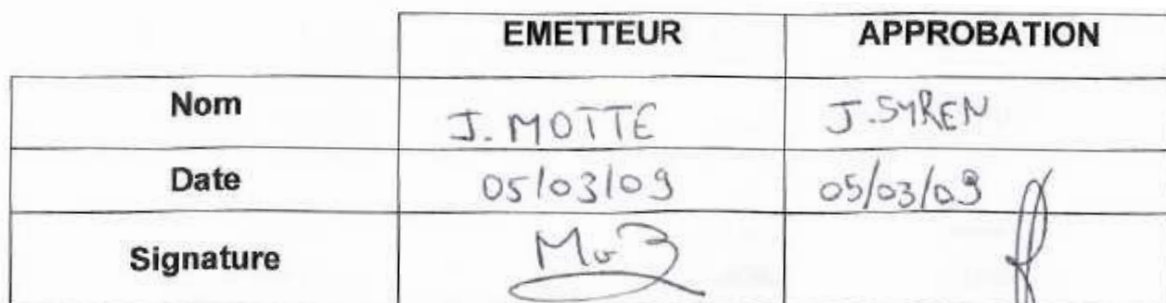 EMETTEUR APPROBATION
Nom J. MOTTE J. SYREN
Date 05/03/09 05/03/09
Signature